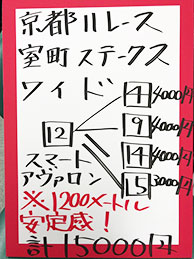 京都11レース
室町ステークス
ワイド
4 4000円
9 4000円
12
14 4000円
スマート
アヴァロン
15 3000円
※1200メートル
安定感!
計15000円